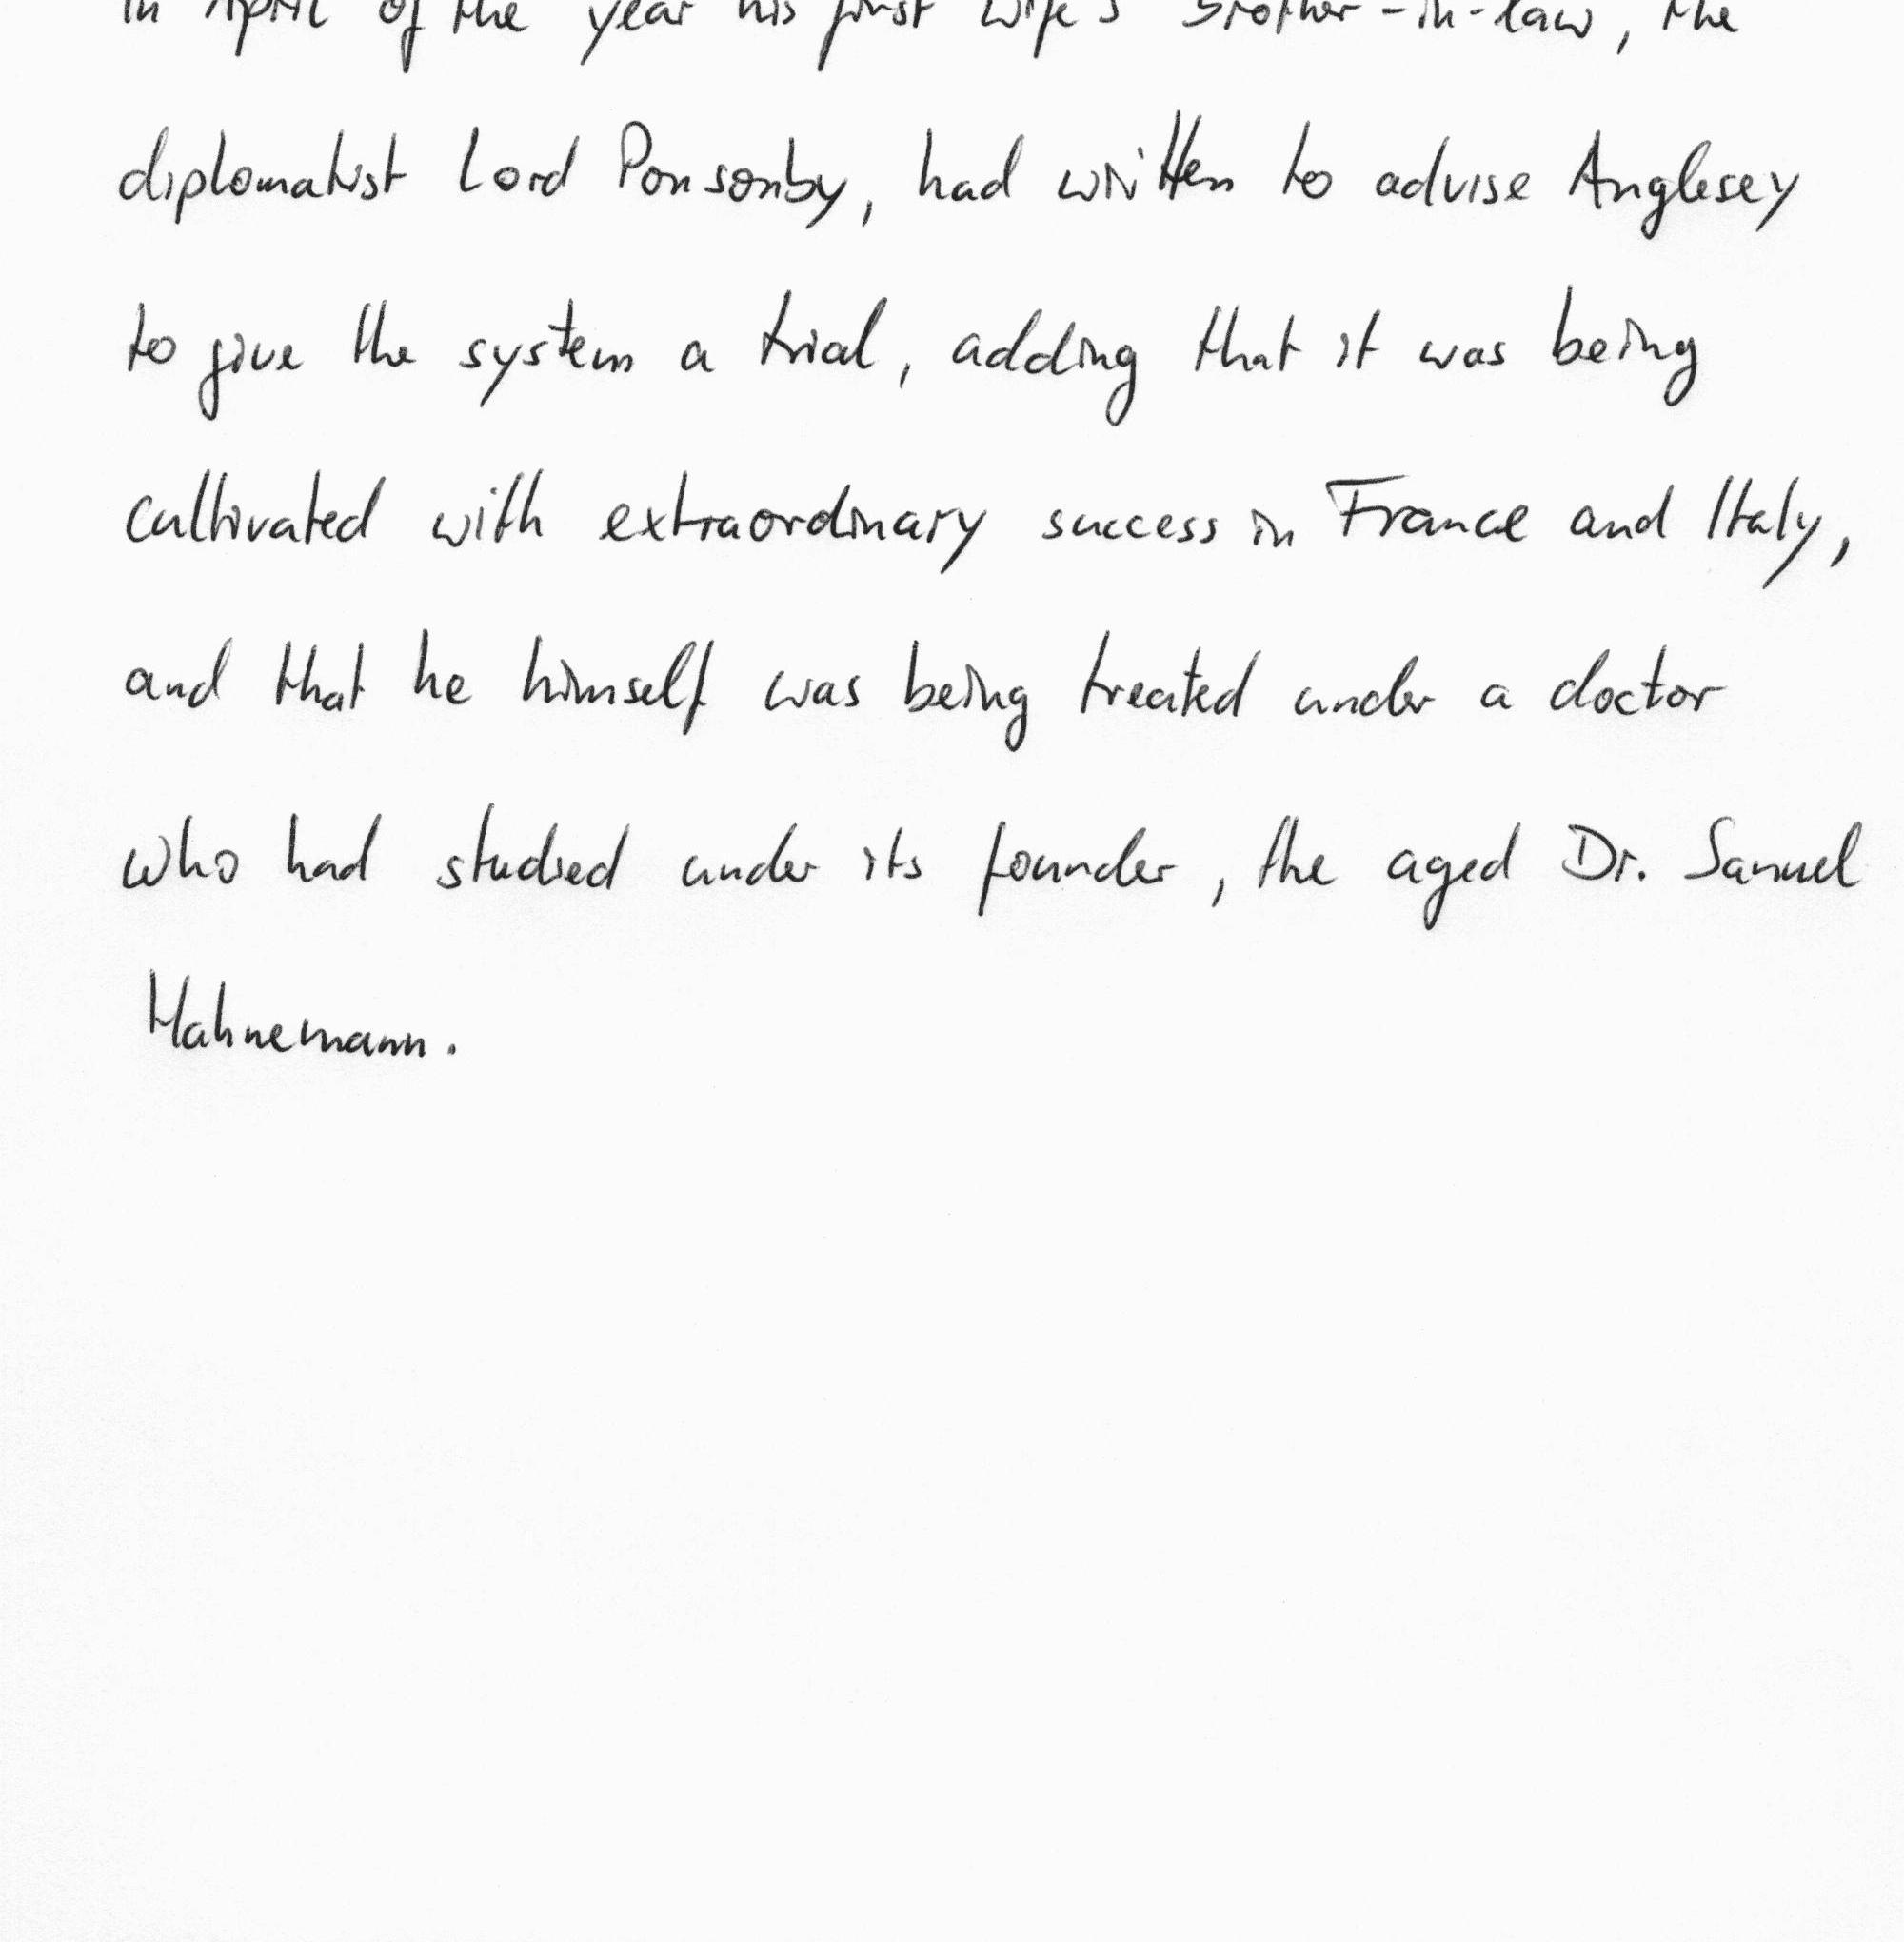 in April of the year his first wife's brother-in-law, the
diplomatist Lord Ponsonby, had written to advise Anglesey
to give the system a trial, adding that it was being
cultivated with extraordinary success in France and Italy,
and that he himself was being treated under a doctor
who had studied under its founder, the aged Dr. Samuel
Hahnemann.